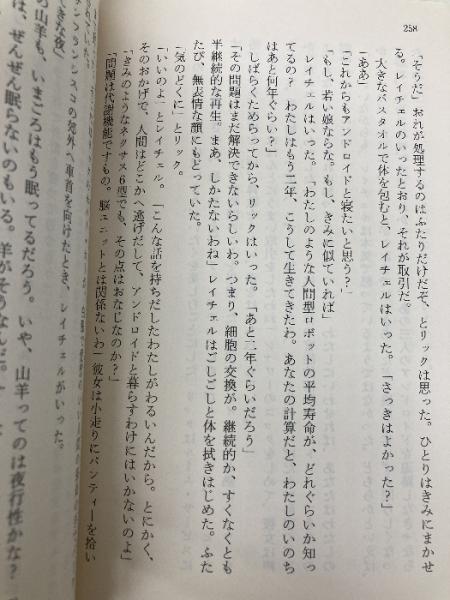 258
「そうだ」おれが処理するのはふたりだけだぞ、とリックは思った。ひとりはきみにまかせ
る。レイチェルのいったとおり、それが取引だ。
大きなバスタオルで体を包むと、レイチェルはいった。「さっきはよかった？」
「ああ」
「これからもアンドロイドと寝たいと思う？」
「もし、若い娘ならな。もし、きみに似ていれば」
レイチェルはいった。「わたしのような人間型ロボットの平均寿命が、どれぐらいか知っ
てるの？ わたしはもう二年、こうして生きてきたわ。あなたの計算だと、わたしのいのち
はあと何年ぐらい？」
しばらくためらってから、リックはいった。「あと二年ぐらいだろう」
「その問題はまだ解決できないらしいわ。つまり、細胞の交換が。継続的か、すくなくとも
半継続的な再生。まあ、しかたないわね」レイチェルはごしごしと体を拭きはじめた。ふた
たび、無表情な顔にもどっていた。
「気のどくに」とリック。
「いいのよ」とレイチェル。「こんな話を持ちだしたわたしがわるいんだから。とにかく、
そのおかげで、人間はどこかへ逃げだして、アンドロイドと暮らすわけにはいかないのよ」
「きみのようなネクサス6型でも、その点はおなじなのか？」
「問題は代謝機能ですもの。脳ユニットとは関係ないわ」彼女は小走りにパンティーを拾い
ンフランシスコの郊外へ車首を向けたとき、レイチェルがいった。
できな夜」
の山羊も、いまごろはもう眠ってるだろう。いや、山羊ってのは夜行性かな？
は、ぜんぜん眠らないのもいる。羊がそうなんだ。